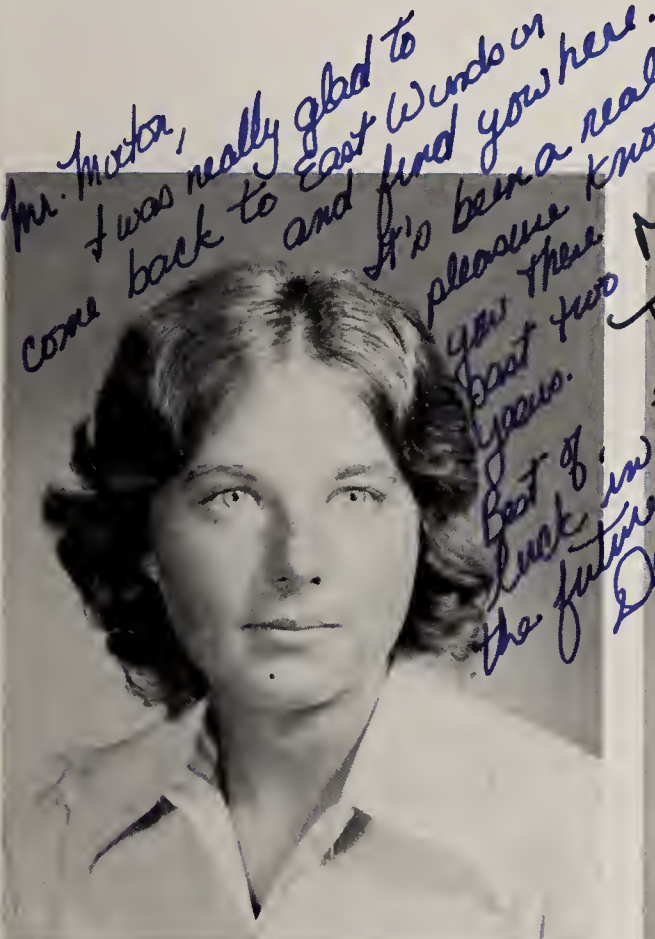 Mr. Morton,
I was really glad to
come back to East Windsor
and find you here.
It's been a real
pleasure
you these
past two
years.
Best of
luck in
the future